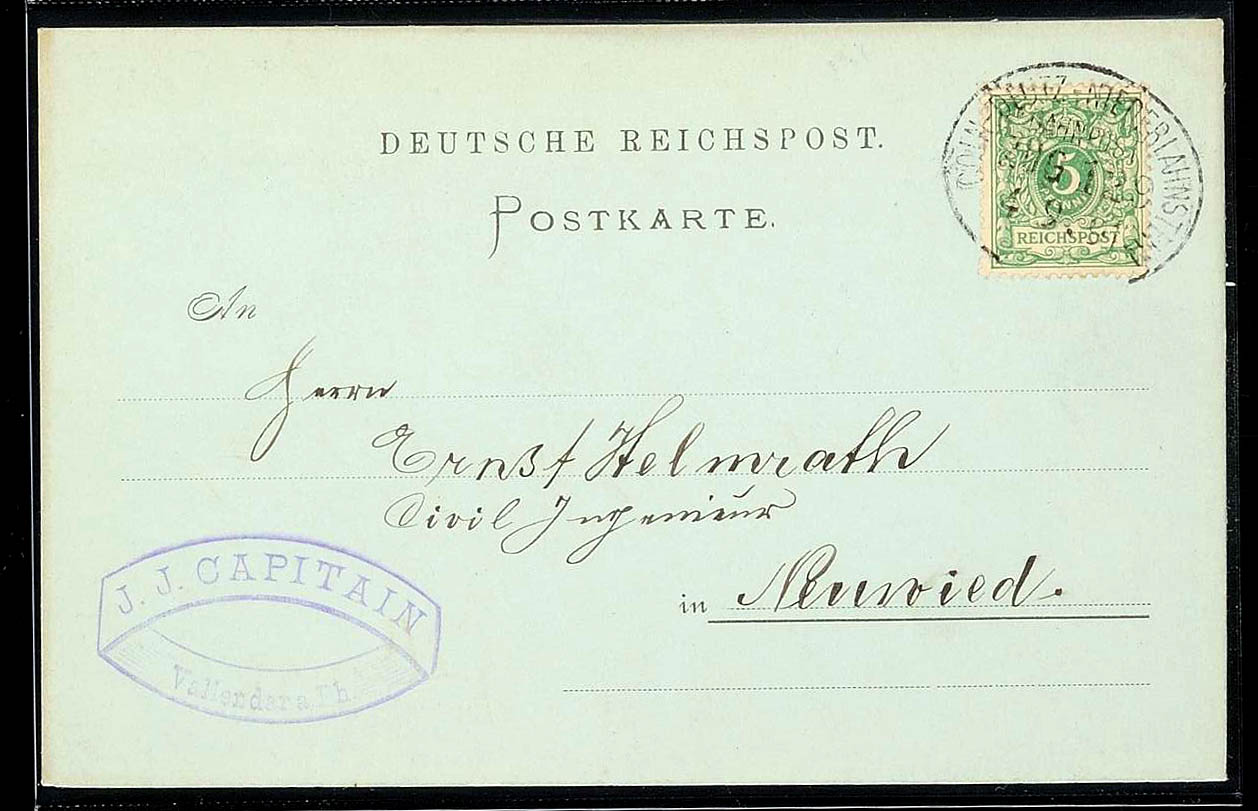 DEUTSCHE REICHSPOST.
POSTKARTE.
CÖLN-DEUTZ-NIEDERLAHNSTEIN
BAHNPOST
5
REICHSPOST
An
Herrn
Ernst Helmrath
Civil Ingenieur
in Neuwied.
J. J. CAPITAIN
Vallendar a/Rh.